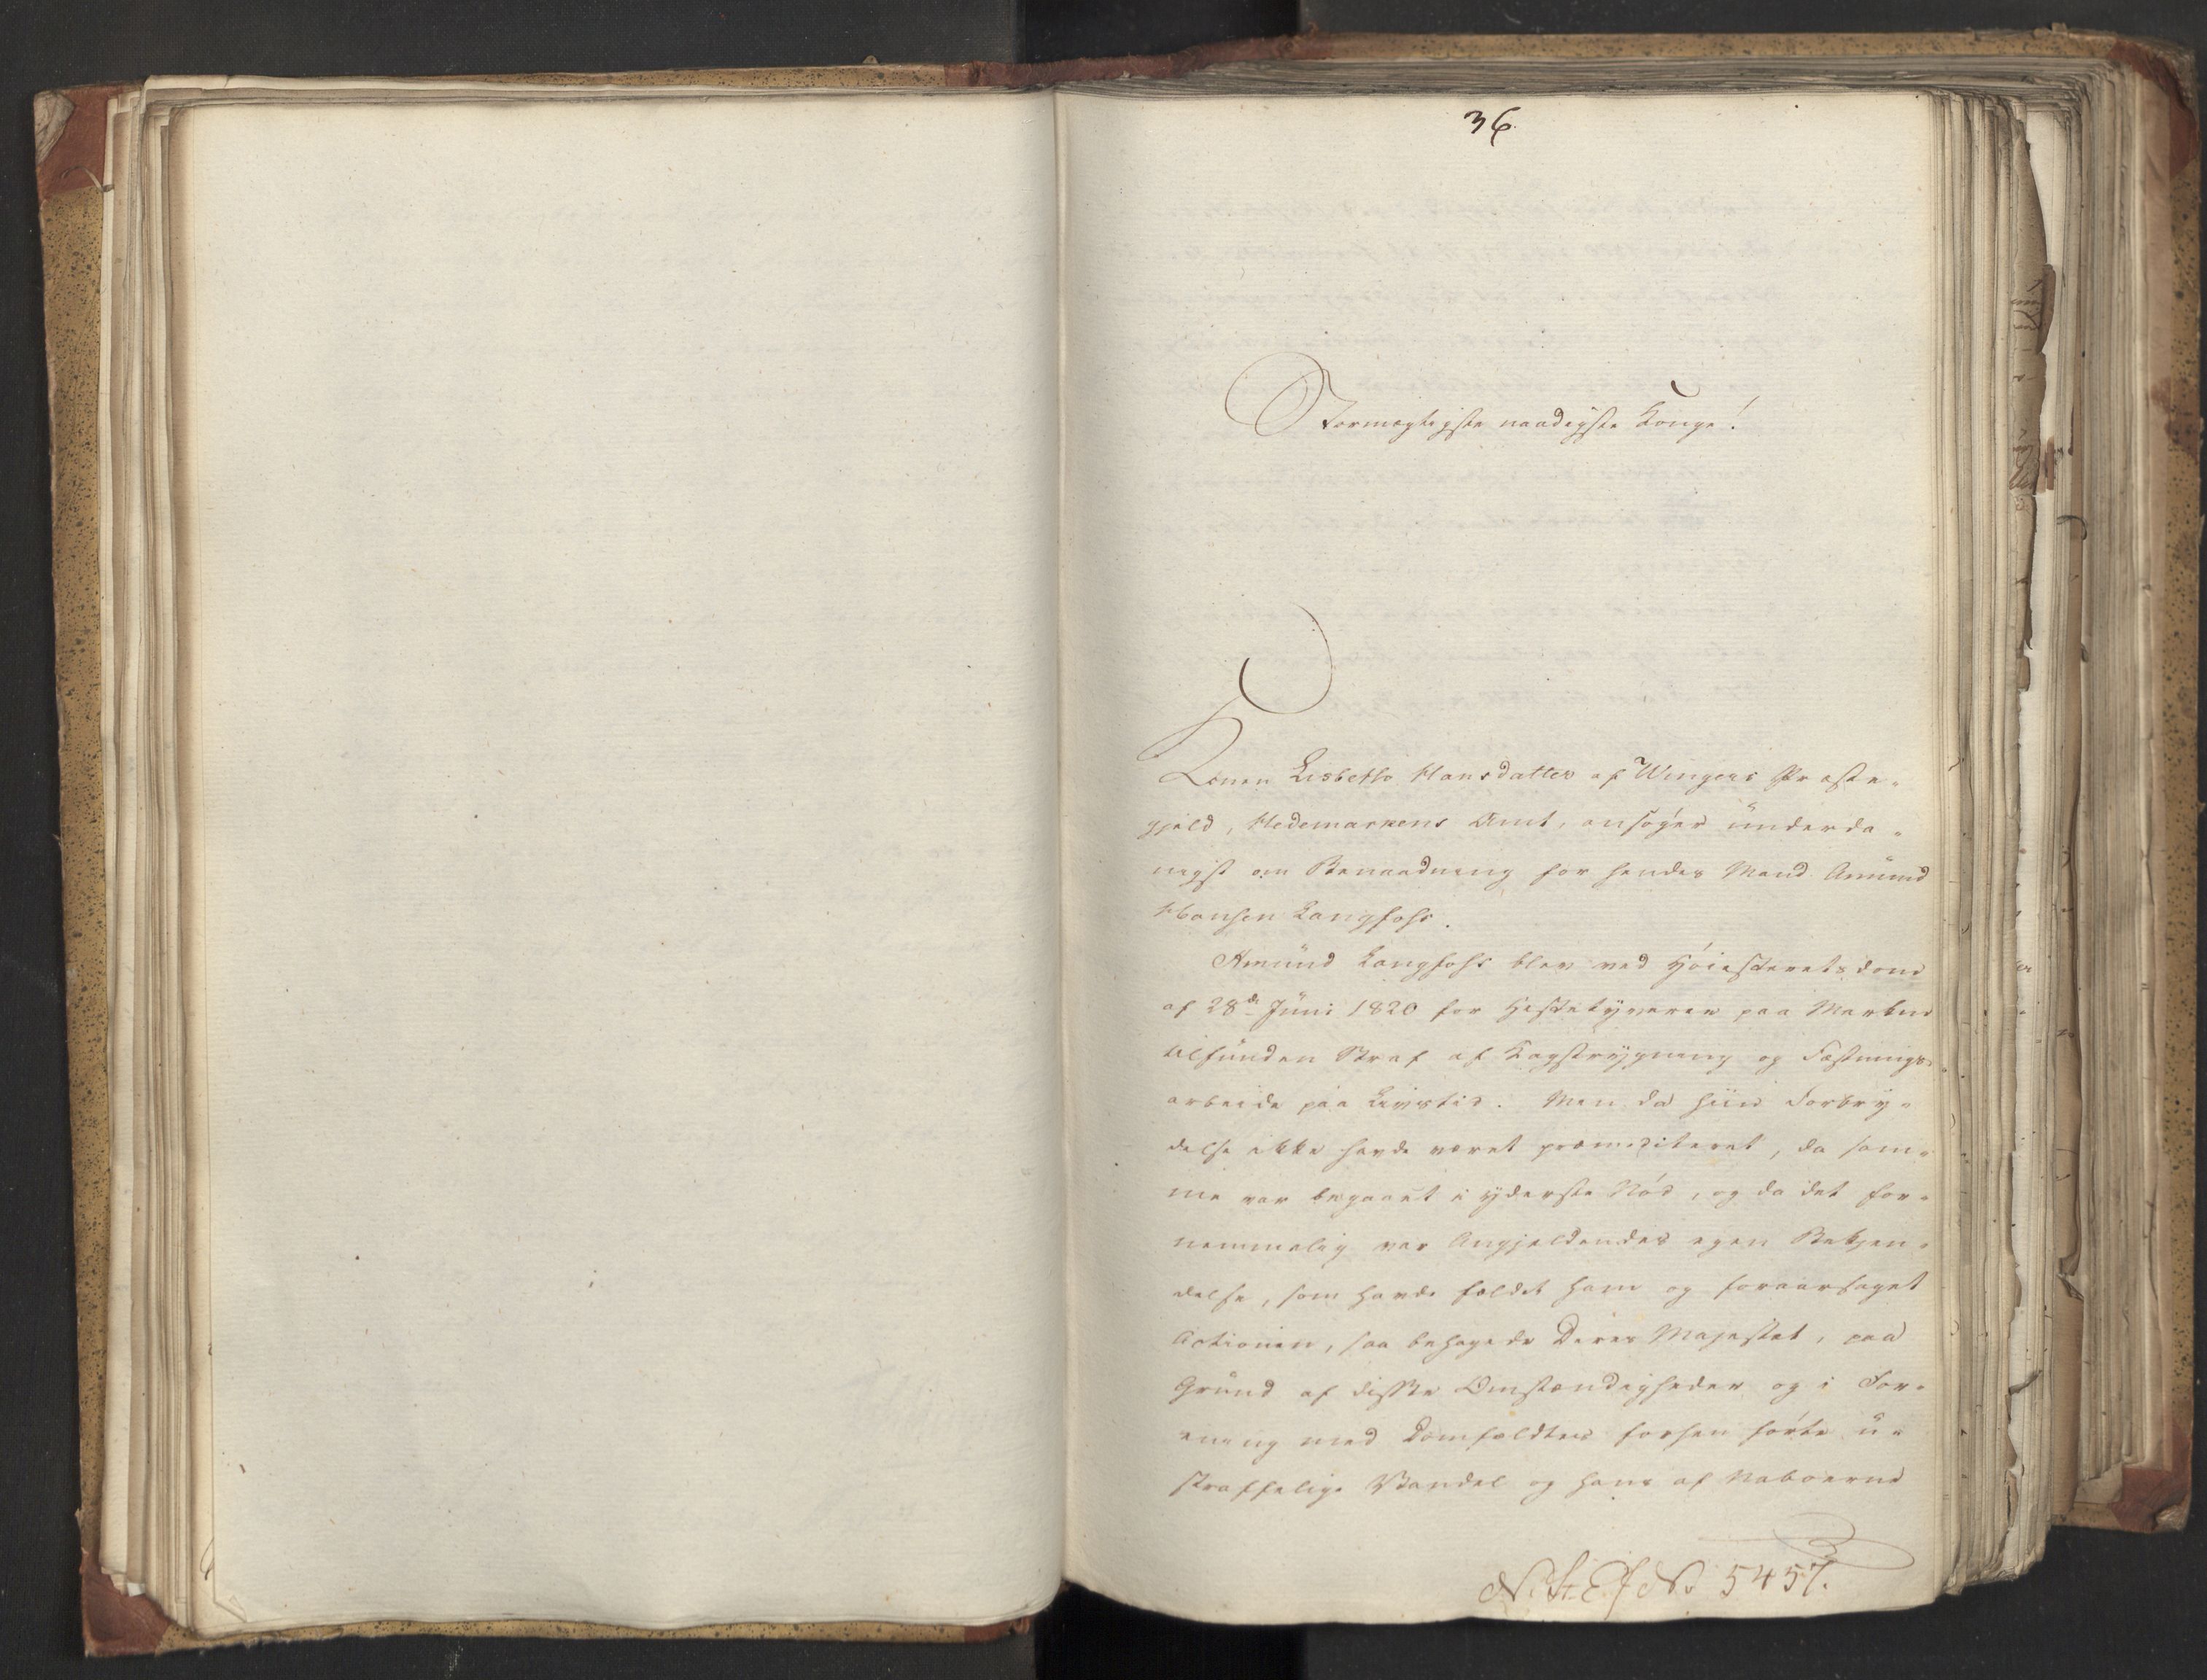 36.
Stormægtigste naadigste Konge!
Konen Lisbeth Hansdatter af Wingers Præste-
gjeld, Hedemarkens Amt, ansøger ünderda-
nigst om Benaadning for hendes Mand Amünd
Hansen Langfoss.
Amünd Langfoss blev ved Høiesteretsdom
af 28de Jüni 1820 for Hestetyverie paa Marken
tilfünden Straf af Kagstrygning og Fæstnings-
arbeide paa Livstid. Men da hiin Forbry-
delse ikke havde været præmediteret, da sam-
me var begaaet i yderste Nød, og da det for-
nemmelig var Angjeldendes egen Bekjen-
delse, som havde fældet ham og foraarsaget
Actionen, saa behagede Deres Majestet, paa
Gründ af disse Omstændigheder og i For-
ening med Domfældtes forhen førte ü-
straffelige Vandel og hans af Naboerne
N. St. E. J No 5457.